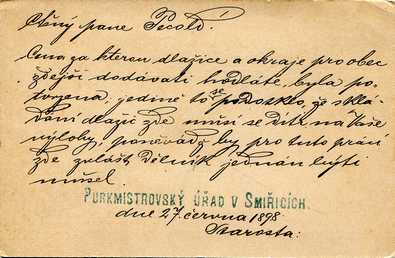 Ctěný pane Pecold.
Cena za kterou dlažice a okraje pro obec
zdejší dodávati hodláte, byla po-
tvrzena, jedině to se podotklo, že sklá-
dání dlažic zde musí se díti na Vaše
výlohy, poněvadž by pro tuto práci
zde zvlášť dělník jednán býti
musel.
PURKMISTROVSKÝ ÚŘAD V SMIŘICÍCH.
dne 27. června 1898
Starosta: